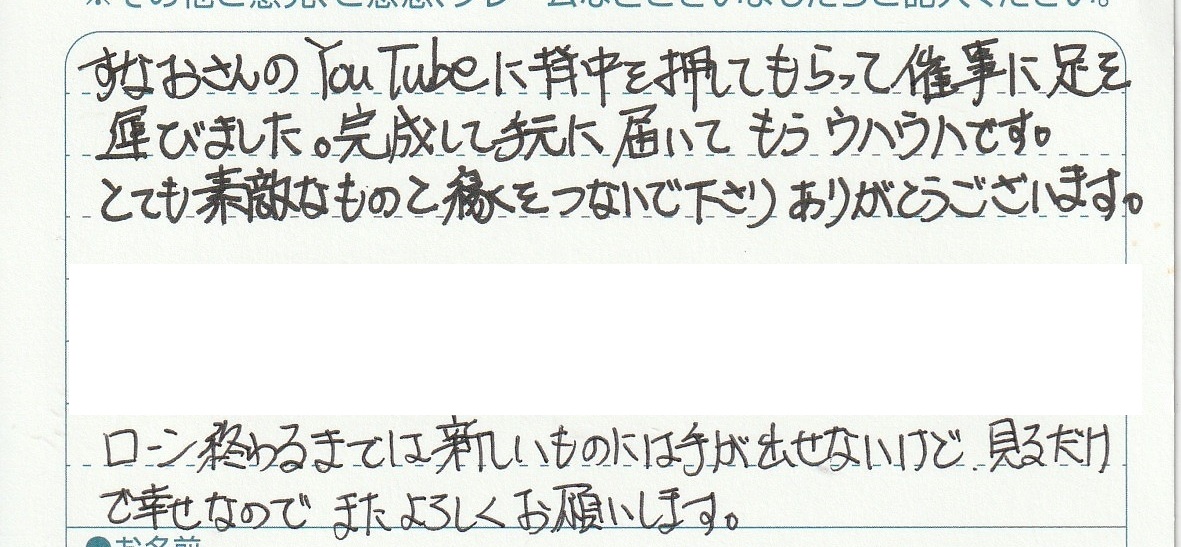 ※その他ご意見、ご感想、クレームなどございましたらご記入ください。
すなおさんの YouTubeに背中を押してもらって催事に足を
運びました。完成して手元に届いて もう ウハウハです。
とても素敵なものと縁をつないで下さり ありがとうございます。
ローン終わるまでは新しいものには手が出せないけど、見るだけ
で幸せなので またよろしくお願いします。
●お名前